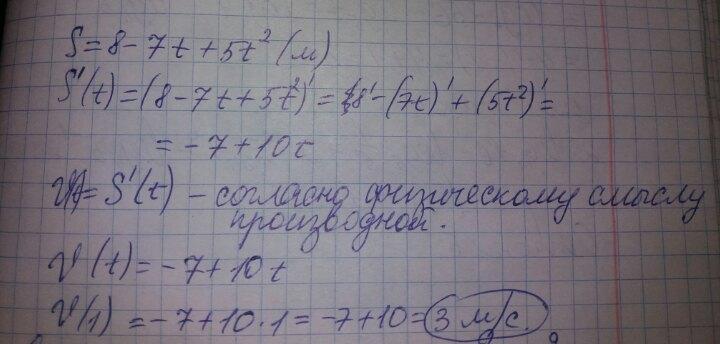 S=8-7t+5t² (м)
S'(t)=(8-7t+5t²)'=8'-(7t)'+(5t²)'=
=-7+10t
V(t)=S'(t) - согласно физическому смыслу
производной.
V(t)=-7+10t
V(1)=-7+10·1=-7+10=3 м/с.